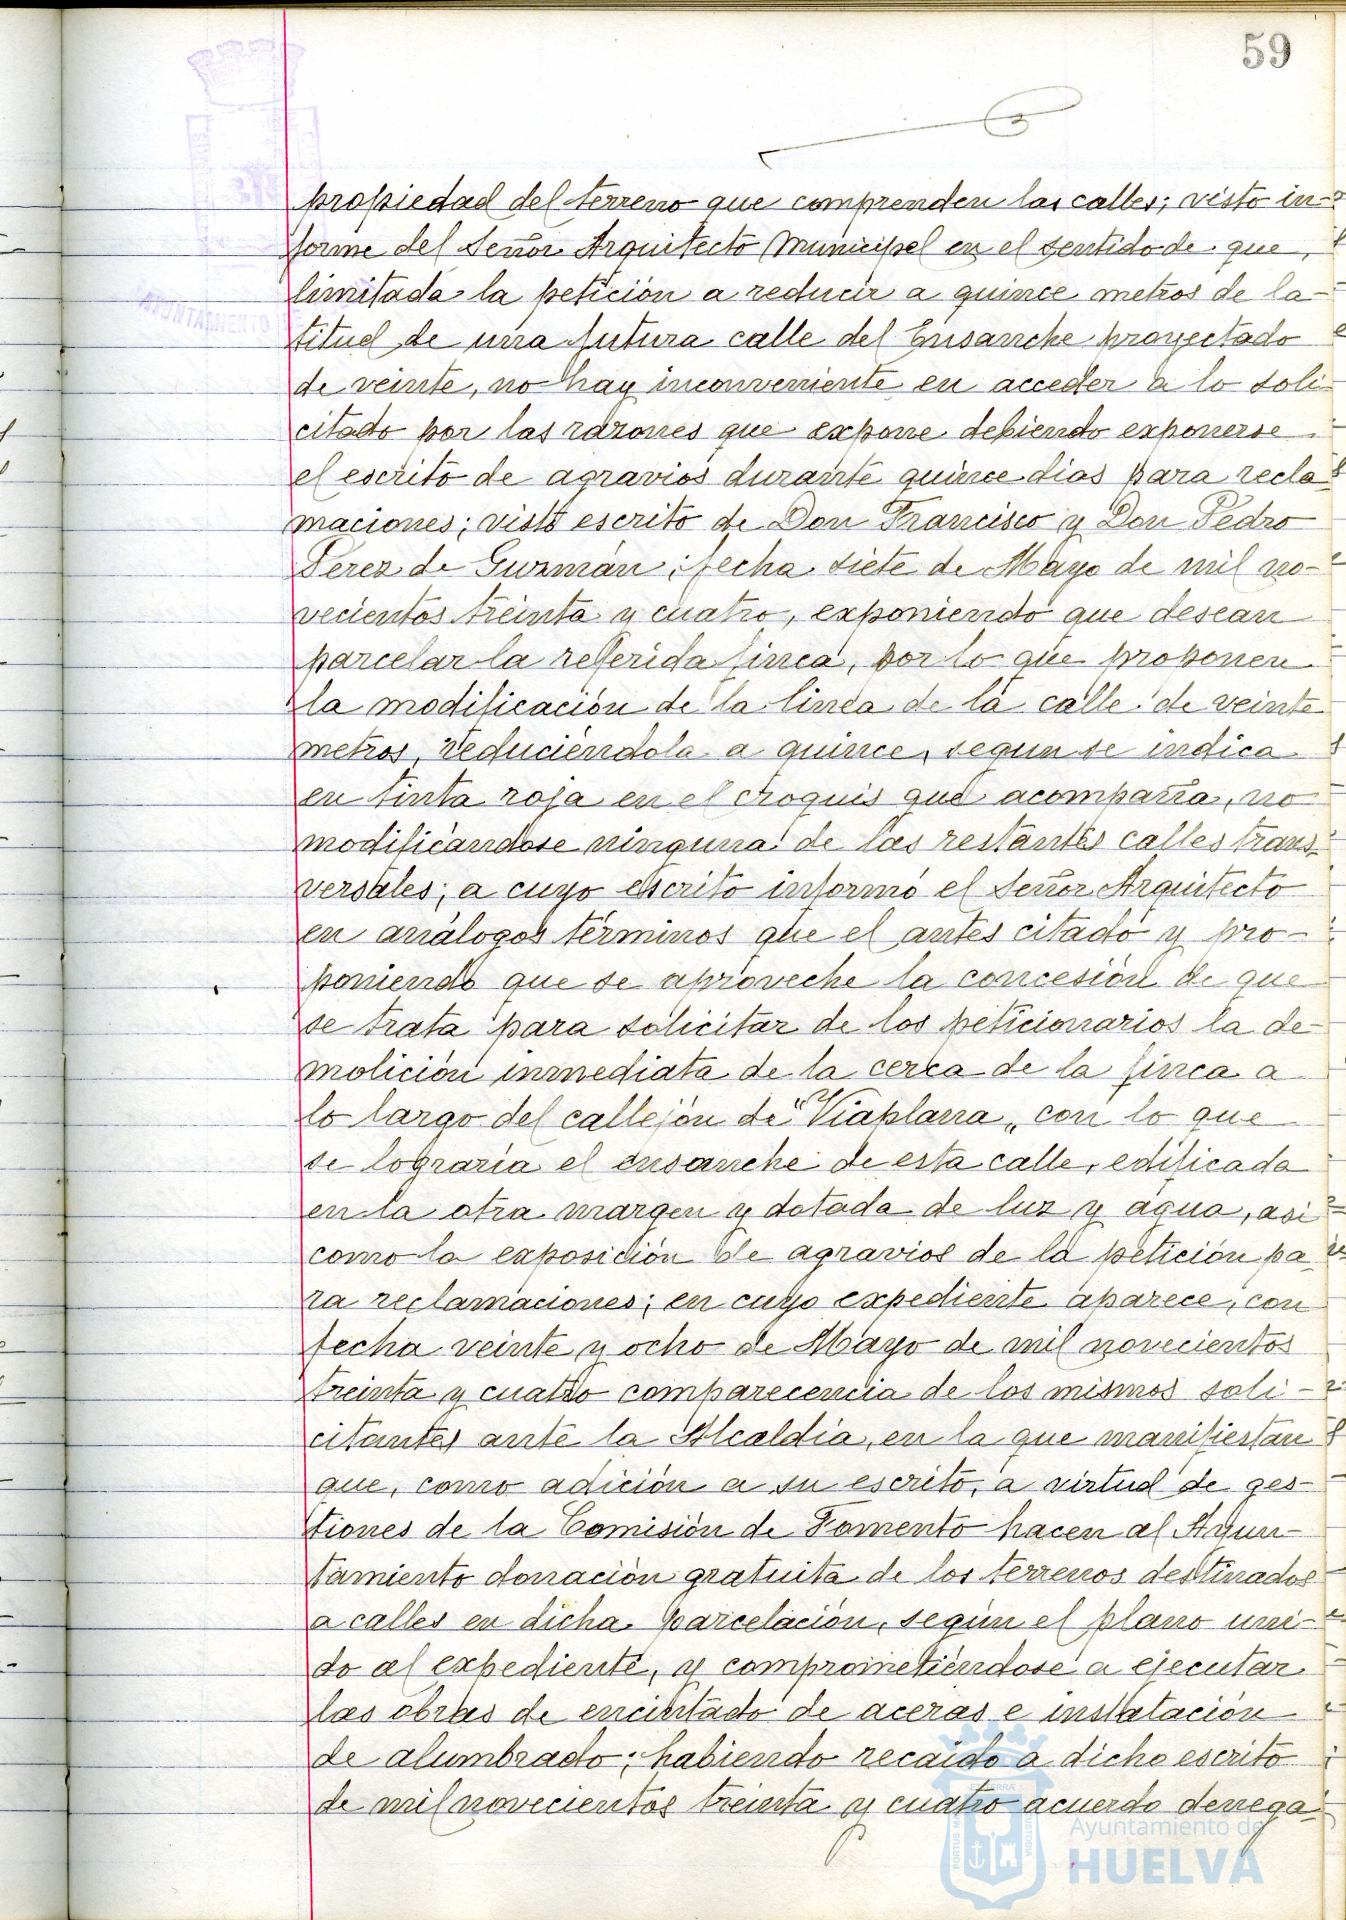 59
propiedad del terreno que comprenden las calles; visto in-
forme del Señor Arquitecto Municipal en el sentido de que,
limitada la petición a reducir a quince metros de la-
titud de una futura calle del Ensanche proyectado
de veinte, no hay inconveniente en acceder a lo soli-
citado por las razones que expone debiendo exponerse
el escrito de agravios durante quince dias para recla-
maciones; visto escrito de Don Francisco y Don Pedro
Perez de Guzmán, fecha siete de Mayo de mil no-
vecientos treinta y cuatro, exponiendo que desean
parcelar la referida finca, por lo que proponen
la modificación de la linea de la calle de veinte
metros, reduciéndola a quince, segun se indica
en tinta roja en el croquis que acompaña, no
modificándose ninguna de las restantes calles trans-
versales; a cuyo escrito informó el Señor Arquitecto
en análogos términos que el antes citado y pro-
poniendo que se aproveche la concesión de que
se trata para solicitar de los peticionarios la de-
molición inmediata de la cerca de la finca a
lo largo del callejón de "Viaplana" con lo que
se lograría el ensanche de esta calle, edificada
en la otra margen y dotada de luz y agua, asi
como la exposición de agravios de la petición pa-
ra reclamaciones; en cuyo expediente aparece, con
fecha veinte y ocho de Mayo de mil novecientos
treinta y cuatro comparecencia de los mismos soli-
citantes ante la Alcaldía, en la que manifiestan
que, como adición a su escrito, a virtud de ges-
tiones de la Comisión de Fomento hacen al Ayun-
tamiento donación gratuita de los terrenos destinados
a calles en dicha parcelación, según el plano uni-
do al expediente, y comprometiéndose a ejecutar
las obras de encintado de aceras e instalación
de alumbrado; habiendo recaido a dicho escrito
de mil novecientos treinta y cuatro acuerdo denega-
AYUNTAMIENTO DE
Ayuntamiento de
HUELVA